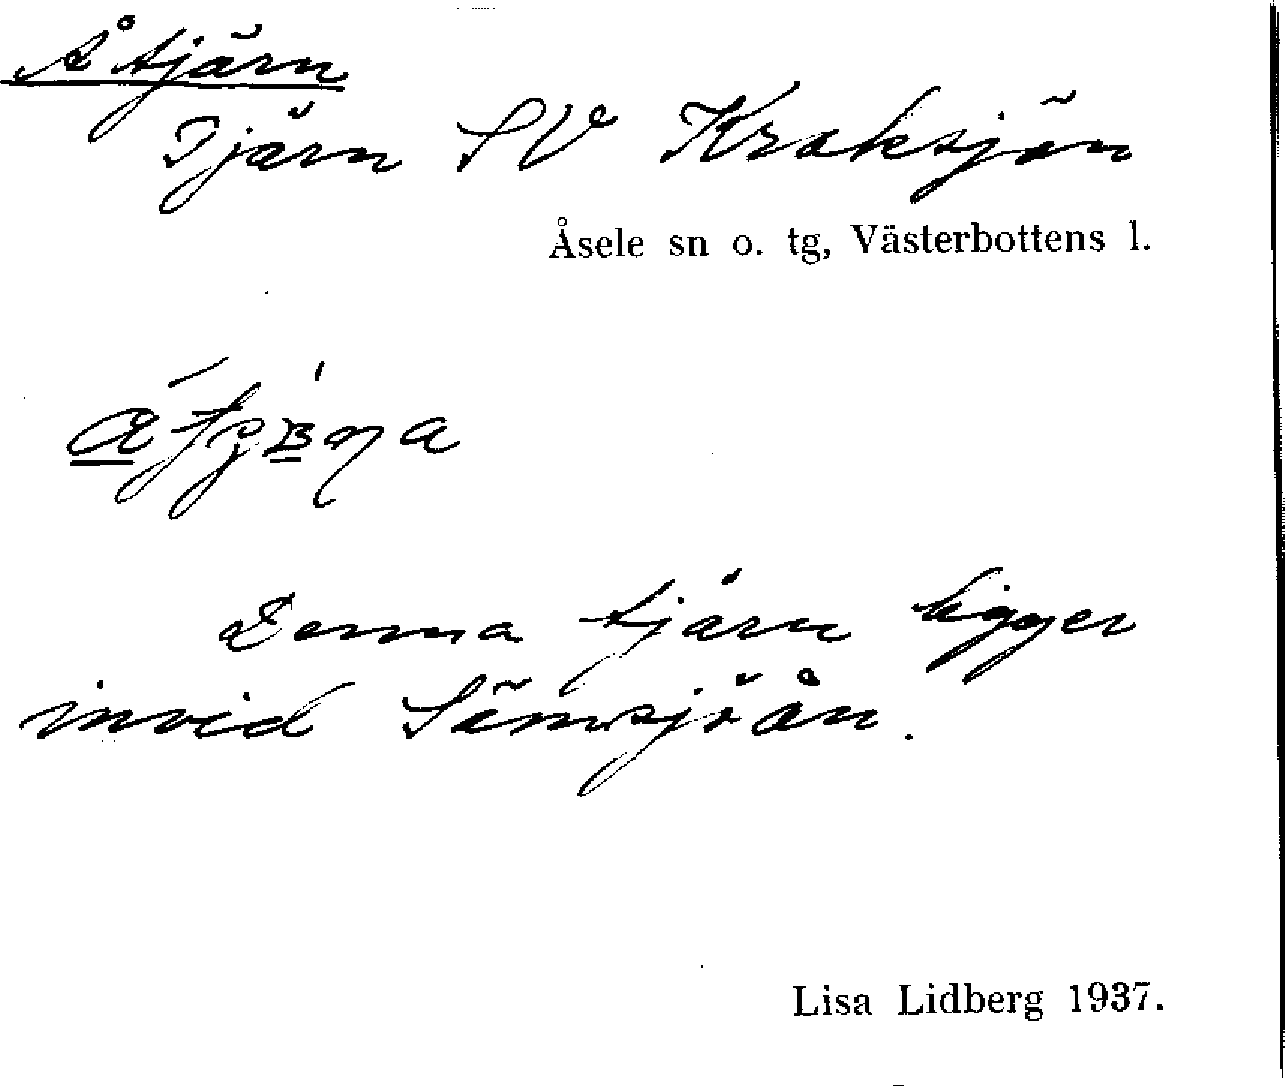 Åtjärn
Tjärn SV Kraksjön
Åsele sn o. tg, Västerbottens l.
Denna tjärn ligger
invid Sämsjöån.
Lisa Lidberg 1937.